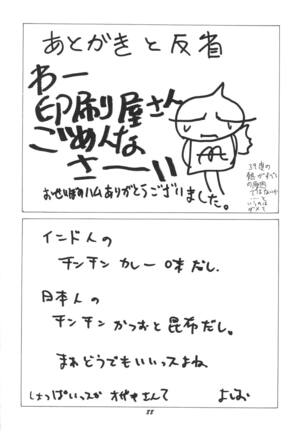 あとがきと反省
わー
印刷り屋さん
ごめんな
さーい
お世話のハムありがとうございました。
インド人の
チンチン カレー味だし.
日本人の
チンチン かつおと昆布だし。
まぁどうでもいいッスよね
しょっぱいッスか オヤヂさんて
よしお
88